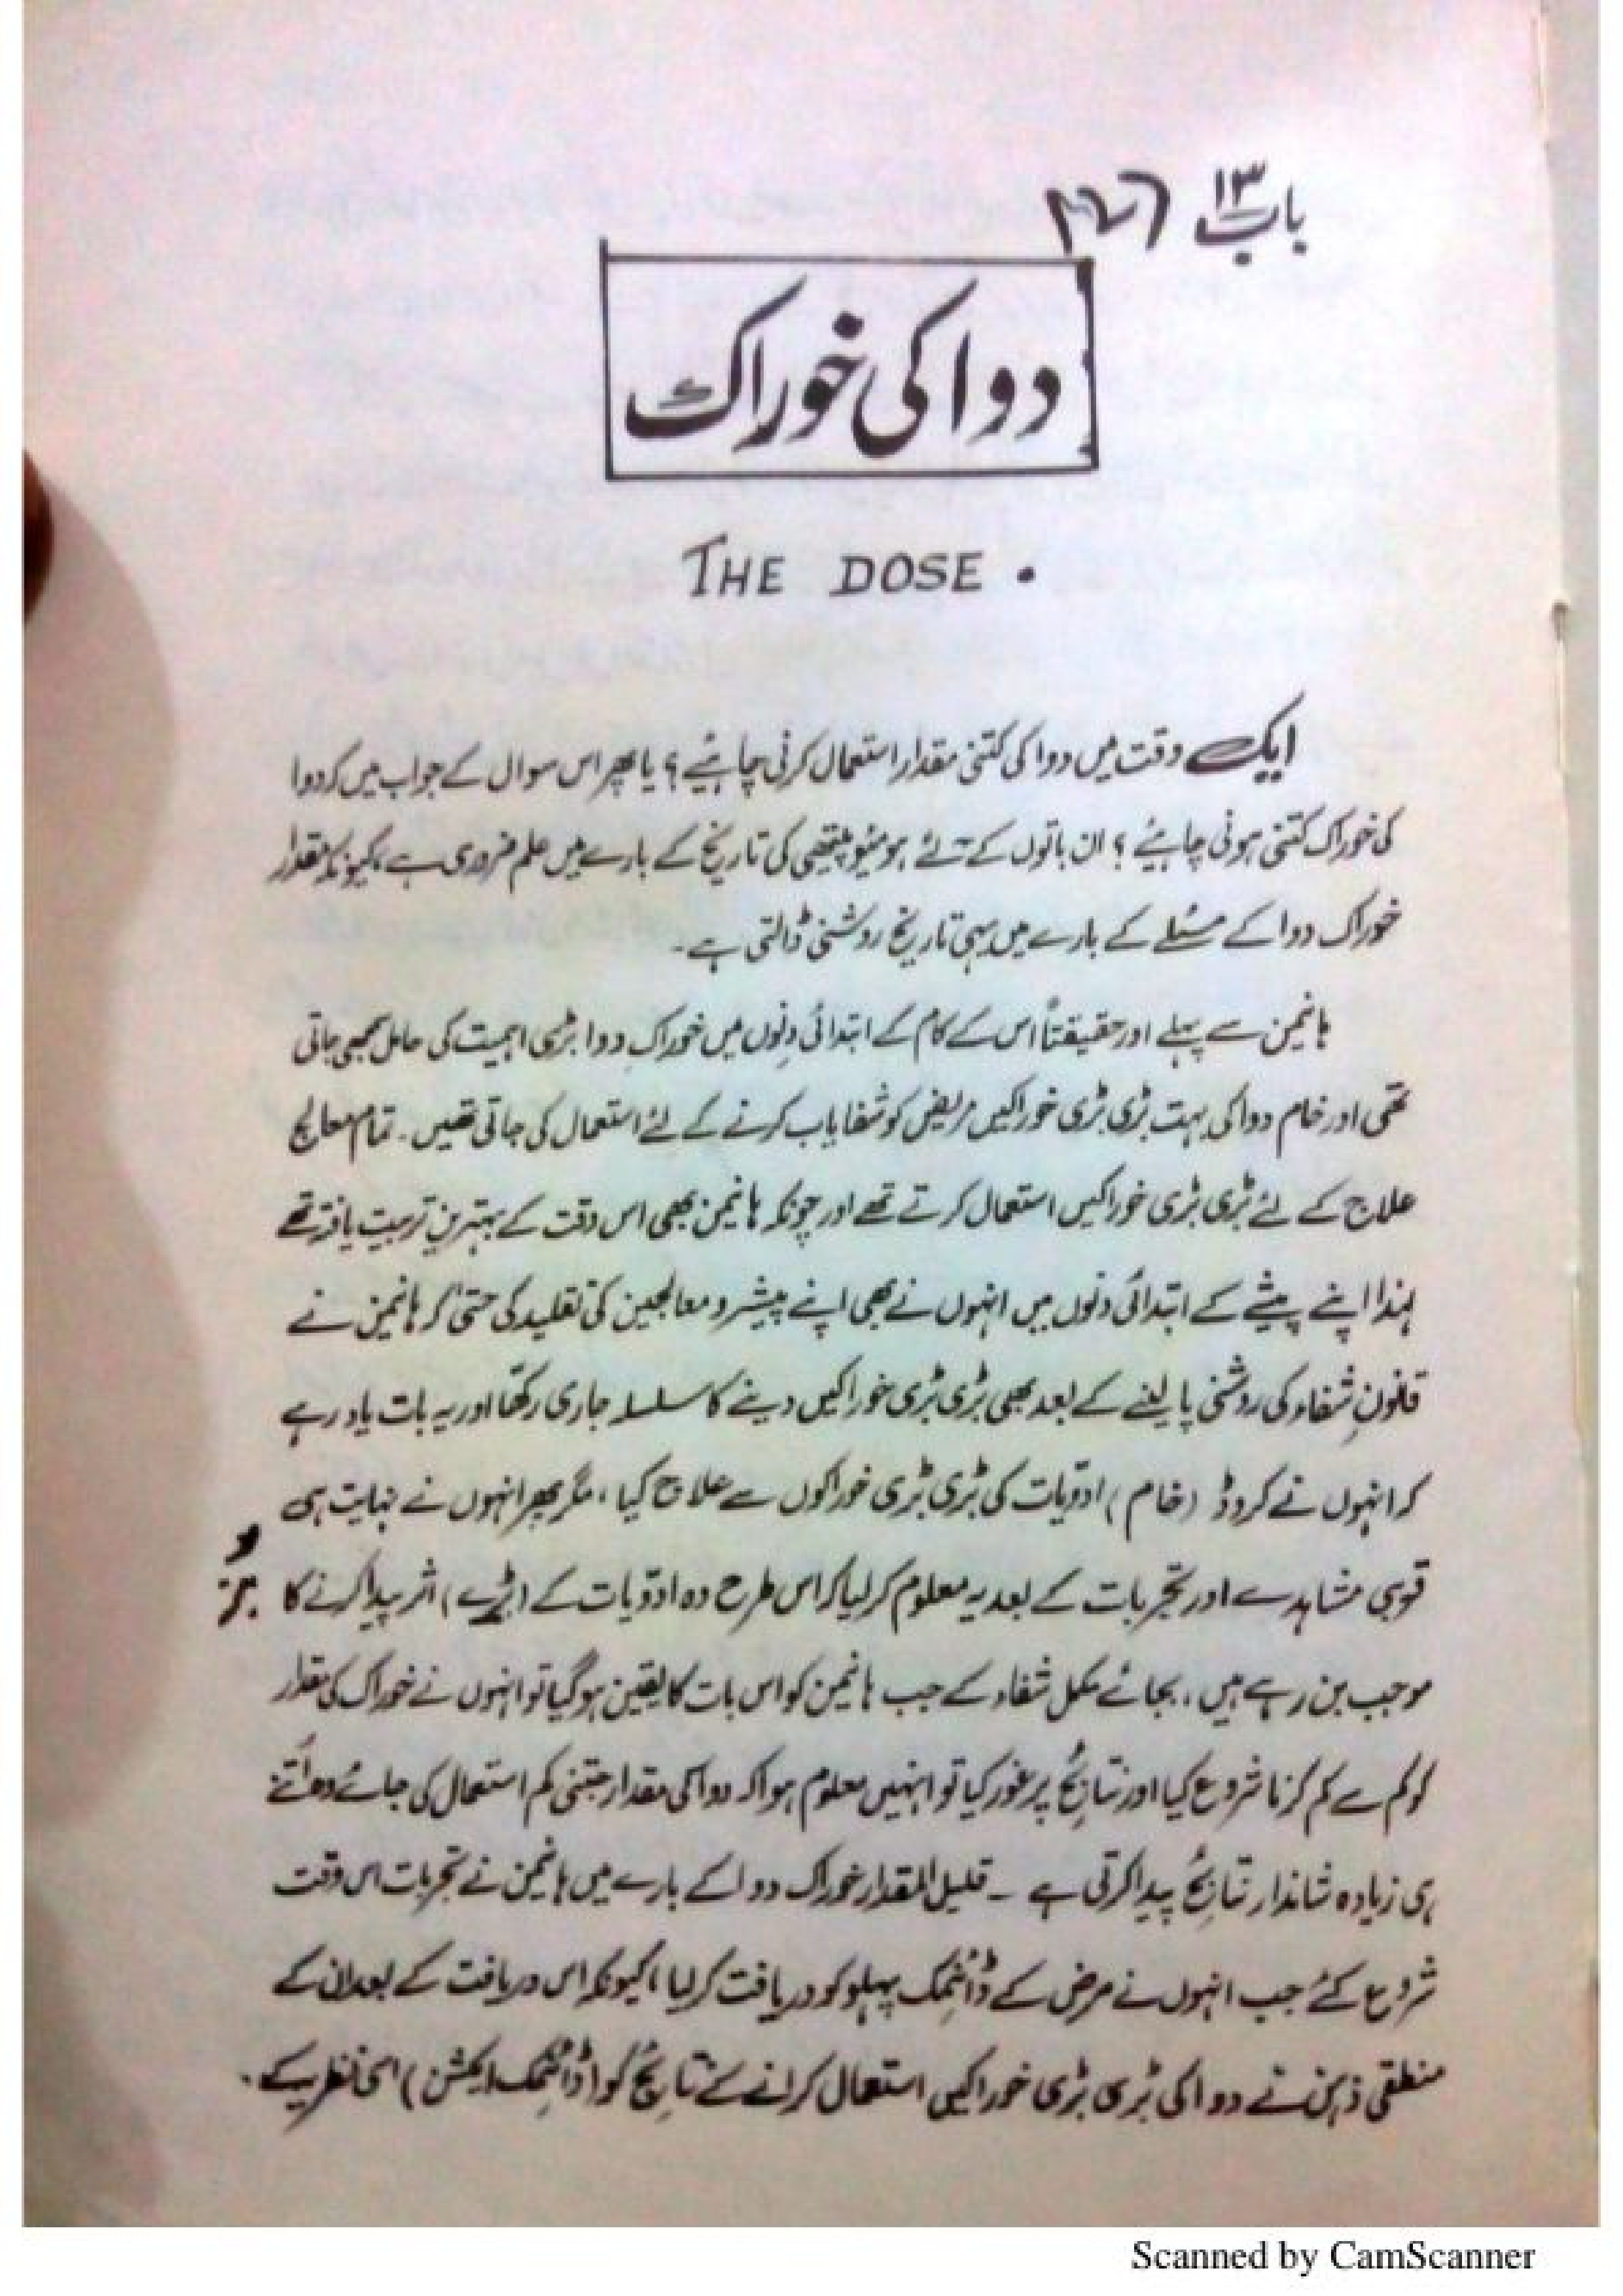 باب ۱۳
دوا کی خوراک
THE DOSE .
ایک وقت میں دوا کی کتنی مقدار استعمال کرنی چاہئیے ؟ یا پھر اس سوال کے جواب میں کہ دوا
کی خوراک کتنی ہونی چاہئیے ؟ ان باتوں کے لئے ہومیوپیتھی کی تاریخ کے بارے میں علم ضروری ہے ، کیونکہ مقدار
خوراک دوا کے مسئلے کے بارے میں یہی تاریخ روشنی ڈالتی ہے ۔
ہانیمن سے پہلے اور حقیقتاً اس کے کام کے ابتدائی دنوں میں خوراکِ دوا بڑی اہمیت کی حامل سمجھی جاتی
تھی اور خام دوا کی بہت بڑی بڑی خوراکیں مریض کو شفایاب کرنے کے لئے استعمال کی جاتی تھیں ۔ تمام معالج
علاج کے لئے بڑی بڑی خوراکیں استعمال کرتے تھے اور چونکہ ہانیمن بھی اس وقت کے بہترین تربیت یافتہ تھے
لہٰذا اپنے پیشے کے ابتدائی دنوں میں انہوں نے بھی اپنے پیشرو معالجین کی تقلید کی حتیٰ کہ ہانیمن نے
قانونِ شفاء کی روشنی پا لینے کے بعد بھی بڑی بڑی خوراکیں دینے کا سلسلہ جاری رکھا اور یہ بات یاد رہے
کہ انہوں نے کروڈ (خام) ادویات کی بڑی بڑی خوراکوں سے علاج کیا ، مگر پھر انہوں نے نہایت ہی
قوی مشاہدے اور تجربات کے بعد یہ معلوم کر لیا کہ اس طرح وہ ادویات کے ( بُرے ) اثر پیدا کرنے کا
موجب بن رہے ہیں ، بجائے مکمل شفاء کے جب ہانیمن کو اس بات کا یقین ہو گیا تو انہوں نے خوراک کی مقدار
کو کم سے کم کرنا شروع کیا اور نتائج پر غور کیا تو انہیں معلوم ہوا کہ دوا کی مقدار جتنی کم استعمال کی جائے وہ اتنے
ہی زیادہ شاندار نتائج پیدا کرتی ہے ۔ قلیل المقدار خوراک دوا کے بارے میں ہانیمن نے تجربات اس وقت
شروع کئے جب انہوں نے مرض کے ڈائنمک پہلو کو دریافت کر لیا ، کیونکہ اس دریافت کے بعد ان کے
منطقی ذہن نے دوا کی بڑی بڑی خوراکیں استعمال کرانے کے نتائج کو ( ڈائنمک ایکشن ) اسی نظریے کے
Scanned by CamScanner